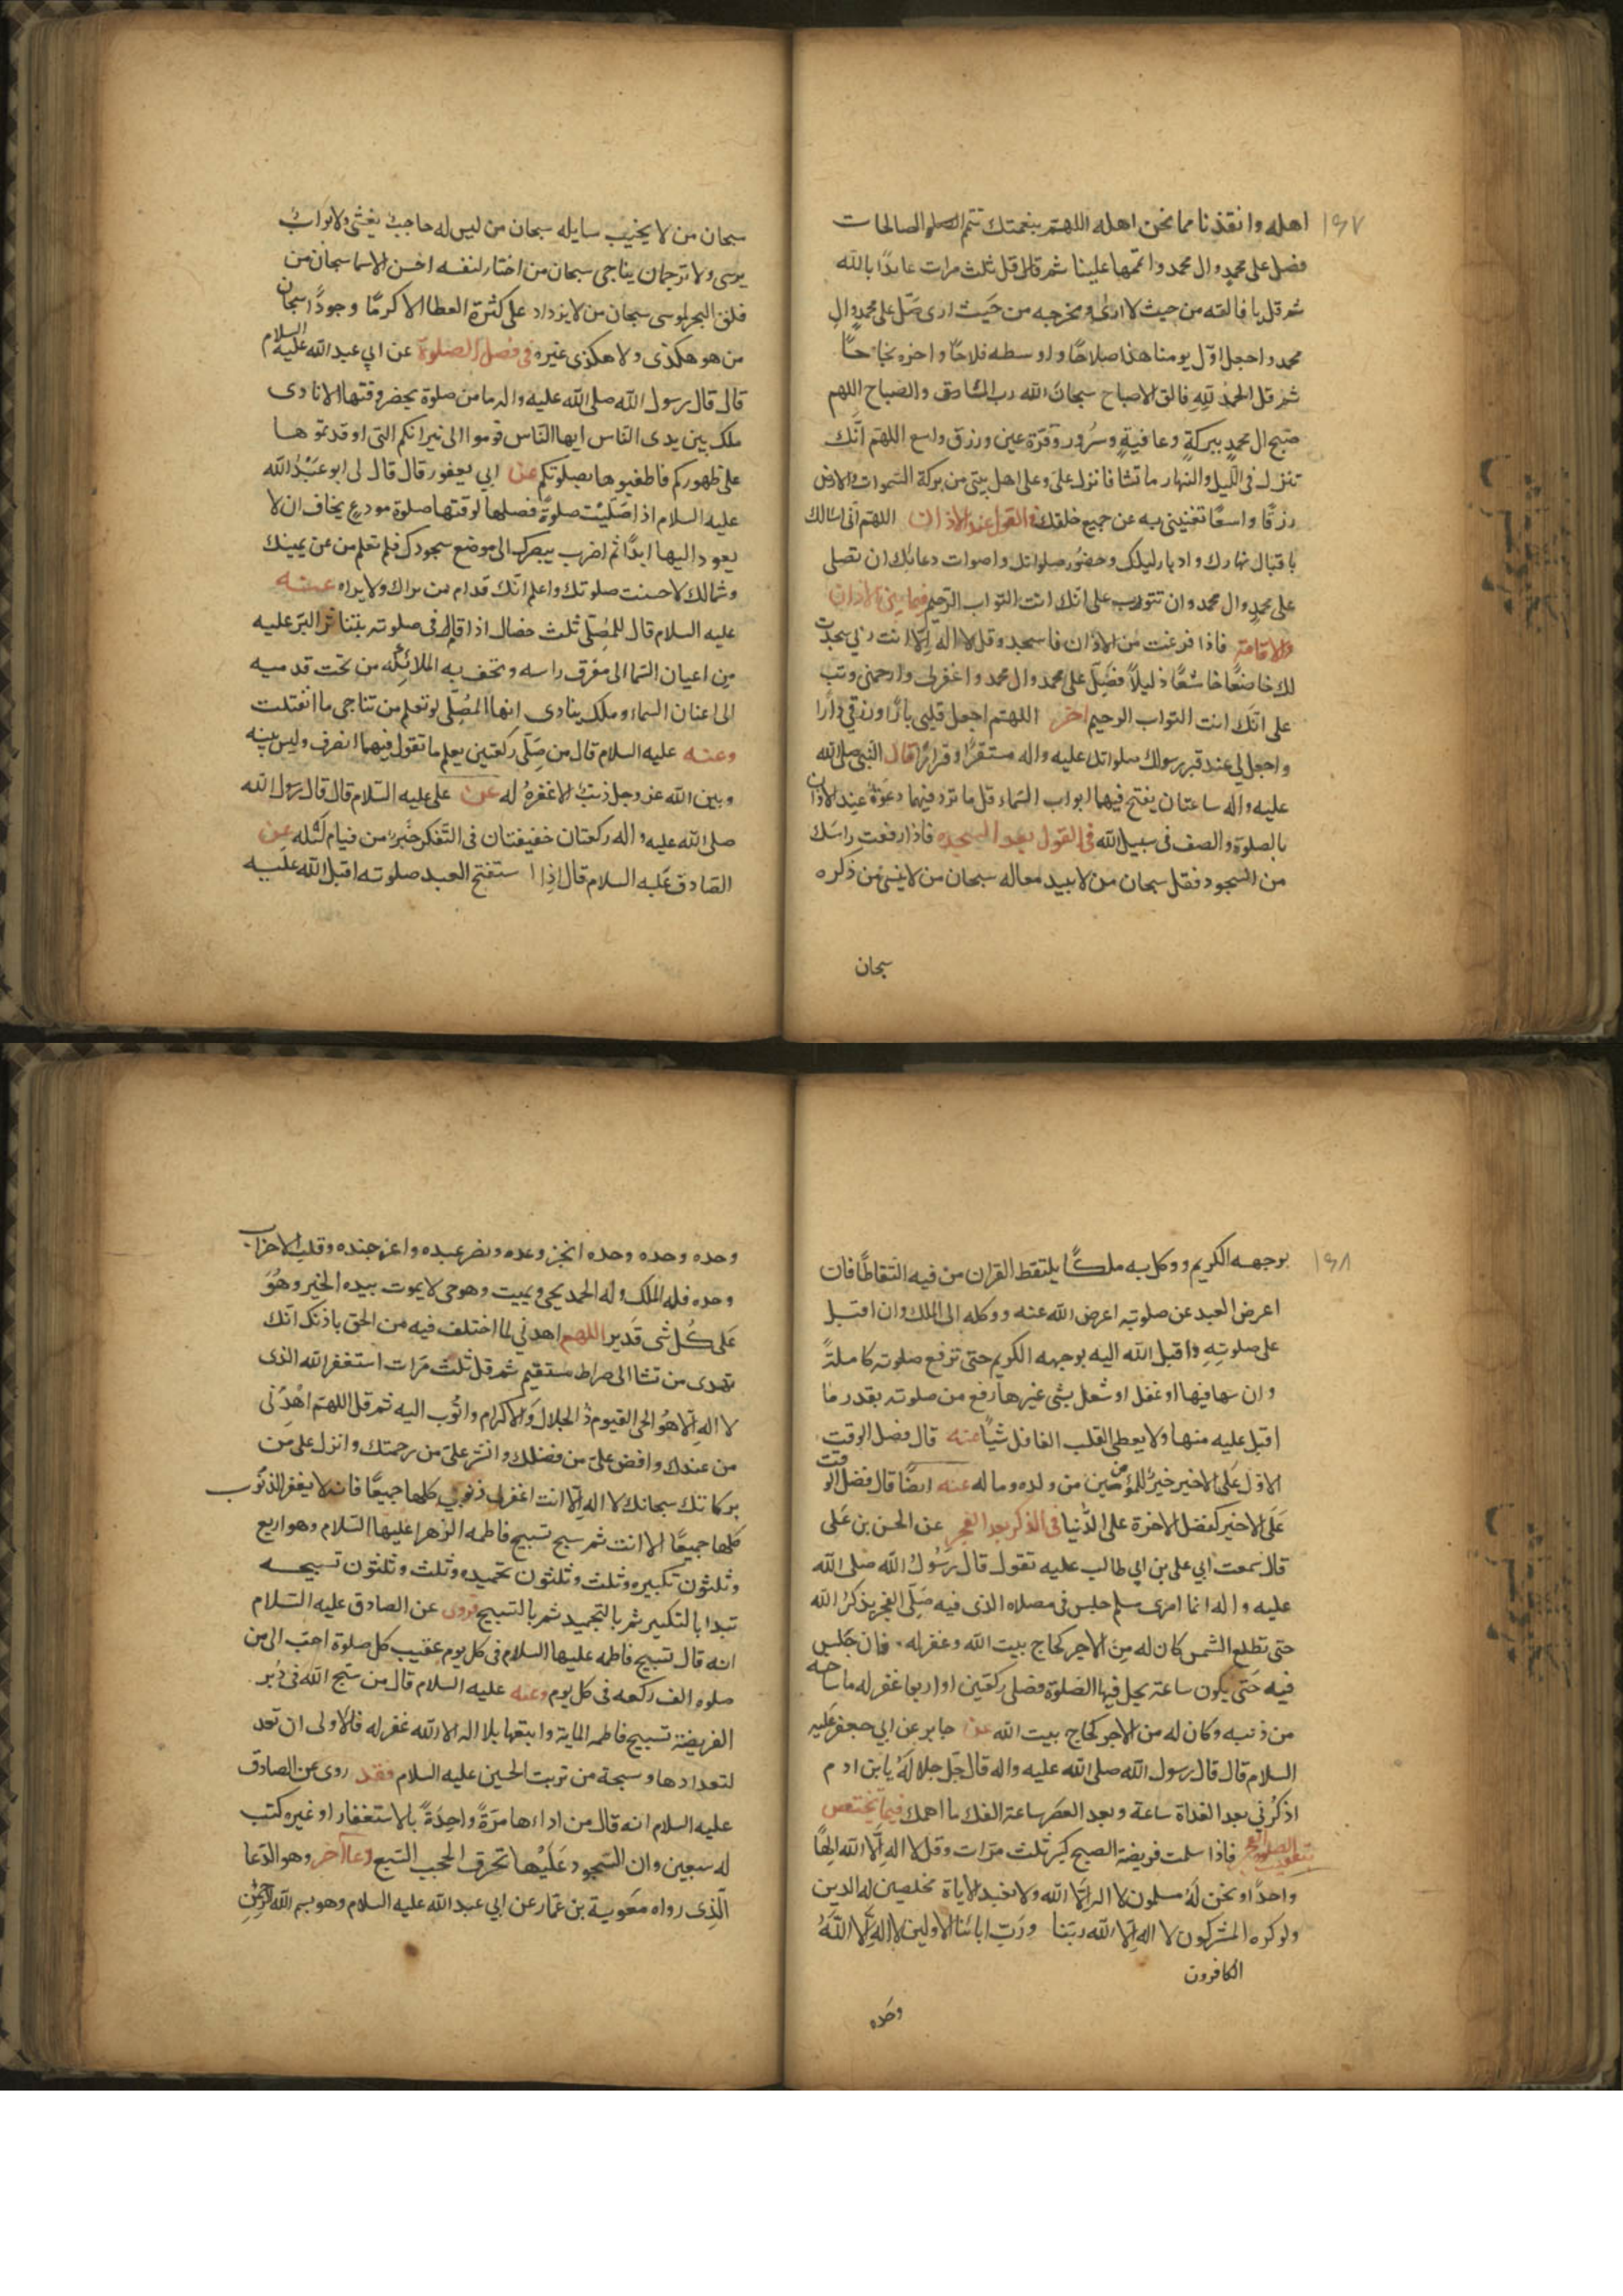 ١٦٧
اهله وانقذنا مما نحن اهله اللهم بنعمتك تتم الصالحات
فصل على محمد وال محمد واتممها علينا ثم قال قل ثلث مرات عايذا بالله
ثم قل يا فالقه من حيث لا ارى ومخرجه من حيث ارى صل على محمد وال
محمد واجعل اول يومنا هذا صلاحا واوسطه فلاحا واخره نجاحا
ثم قل الحمد لله فالق الاصباح سبحان الله رب المساء والصباح اللهم
صبح ال محمد ببركة وعافية وسرور وقرة عين ورزق واسع اللهم انك
تنزل في الليل والنهار ما تشا فانزل علي وعلى اهل بيتي من بركة السموات والارض
رزقا واسعا تغنيني به عن جميع خلقك في القول عند الاذان اللهم اني اسالك
باقبال نهارك وادبار ليلك وحضور صلواتك واصوات دعاتك ان تصلى
على محمد وال محمد وان تتوب على انك انت التواب الرحيم فيما بين الاذان
والاقامة فاذا فرغت من الاذان فاسجد وقل لا اله الا انت ربي سجدت
لك خاضعا خاشعا ذليلا فصل على محمد وال محمد واغفرلى وارحمنى وتب
على انك انت التواب الرحيم اخر اللهم اجعل قلبى بارا ورزقي دارا
واجعل لي عند قبر رسولك صلواتك عليه واله مستقرا وقرارا قال النبي صلى الله
عليه واله ساعتان يفتح فيهما ابواب السماء قل ما ترد فيهما دعوة عند الاذان
بالصلوة والصف فى سبيل الله فى القول بعد السجده فاذا رفعت راسك
من السجود فقل سبحان من لا يبيد معاله سبحان من لا ينسى من ذكره
سبحان
سبحان من لا يخيب سايله سبحان من ليس له حاجب يغشى ولا بواب
يرشى ولا ترجمان يناجى سبحان من اختار لنفسه احسن الاسما سبحان من
فلق البحر لموسى سبحان من لا يزداد على كثرة العطا الا كرما وجودا سبحان
من هو هكذى ولا هكذى غيره فى فضل الصلوة عن ابي عبد الله عليه السلام
قال قال رسول الله صلى الله عليه واله ما من صلوة يحضر وقتها الا نادى
ملك بين يدى الناس ايها الناس قوموا الى نيرانكم التى اوقدتموها
على ظهوركم فاطفيوها بصلوتكم عن ابي يعفور قال قال لى ابو عبد الله
عليه السلام اذا صليت صلوة فصلها لوقتها صلوة مودع يخاف ان لا
يعود اليها ابدا ثم اضرب ببصرك الى موضع سجودك فلو تعلم من عن يمينك
وشمالك لاحسنت صلوتك واعلم انك قدام من يراك ولا يراه عنه
عليه السلام قال للمصلى ثلث خصال اذا قام فى صلوته يتناثر البر عليه
من اعيان السما الى مفرق راسه وتحف به الملائكه من تحت قدميه
الى اعنان السماء وملك ينادى ايها المصلى لو تعلم من تناجى ما انفتلت
وعنه عليه السلام قال من صلى ركعتين يعلم ما تقول فيهما انصرف وليس بينه
وبين الله عز وجل ذنب الا غفره له عن على عليه السلام قال قال رسول الله
صلى الله عليه واله ركعتان خفيفتان فى التفكر خير من قيام ليله عن
الصادق عليه السلام قال اذا استفتح العبد صلوته اقبل الله عليه
١٦٨
بوجهه الكريم ووكل به ملكا يلتقط القران من فيه التقاطا فان
اعرض العبد عن صلوته اعرض الله عنه ووكله الى الملك وان اقبل
على صلوته واقبل الله اليه بوجهه الكريم حتى ترفع صلوته كاملة
وان سها فيها او غفل او شغل بشى غيرها رفع من صلوته بقدر ما
اقبل عليه منها ولا يعطى القلب الغافل شيا عنه قال فضل الوقت
الاول على الاخير خير للمؤمنين من ولده وماله عنه ايضا قال فضل الوقت
على الاخير كفضل الاخرة على الدنيا فى الذكر بعد الفجر عن الحسن بن على
قال سمعت ابي على بن ابي طالب عليه تقول قال رسول الله صلى الله
عليه واله انما امرى مسلم جلس فى مصلاه الذى فيه صلى الفجر يذكر الله
حتى تطلع الشمس كان له من الاجر كحاج بيت الله وغفر له فان جلس
فيه حتى يكون ساعة يحل فيها الصلوة فصلى ركعتين او اربعا غفر له ما
من ذنبه وكان له من الاجر كحاج بيت الله عن جابر عن ابي جعفر عليه
السلام قال قال رسول الله صلى الله عليه واله قال جل جلاله يابن ادم
اذكرني بعد الغداة ساعة وبعد العصر ساعة اكفك ما اهمك فيما يختص
بتعقيب الصلوة فاذا سلمت فريضة الصبح كبر ثلث مرات وقل لا اله الا الله الها
واحدا ونحن له مسلمون لا اله الا الله ولا نعبد الا اياه مخلصين له الدين
ولو كره المشركون لا اله الا الله ربنا ورب ابائنا الاولين لا اله الا الله
الكافرون
وحده
وحده وحده وحده انجز وعده ونصر عبده واعز جنده وغلب الاحزاب
وحده فله الملك وله الحمد يحيى ويميت وهو حى لا يموت بيده الخير وهو
على كل شى قدير اللهم اهدني لما اختلف فيه من الحق باذنك انك
تهدى من تشا الى صراط مستقيم ثم قل ثلث مرات استغفر الله الذى
لا اله الا هو الحى القيوم ذا الجلال والاكرام واتوب اليه ثم قل اللهم اهدنى
من عندك وافض على من فضلك وانشر على من رحمتك وانزل على من
بركاتك سبحانك لا اله الا انت اغفرلى ذنوبى كلها جميعا فانه لا يغفر الذنوب
كلها جميعا الا انت ثم سبح تسبيح فاطمه الزهرا عليها السلام وهو اربع
وثلثون تكبيره وثلث وثلثون تحميده وثلث وثلثون تسبيحه
تبدا بالتكبير ثم بالتحميد ثم بالتسبيح فروى عن الصادق عليه السلام
انه قال تسبيح فاطمه عليها السلام فى كل يوم عقيب كل صلوة احب الى من
صلوه الف ركعه فى كل يوم وعنه عليه السلام قال من سبح الله فى دبر
الفريضة تسبيح فاطمه الماية واتبعها بلا اله الا الله غفر له فالاولى ان تعد
لتعدادها وسبحة من تربت الحسين عليه السلام فقد روى عن الصادق
عليه السلام انه قال من اداءها مرة واحدة بالاستغفار او غيره كتب
له سبعين وان السجود عليها تخرق الحجب السبع دعا آخر وهو الدعا
الذى رواه معوية بن عمار عن ابي عبد الله عليه السلام وهو بسم الله الرحمن